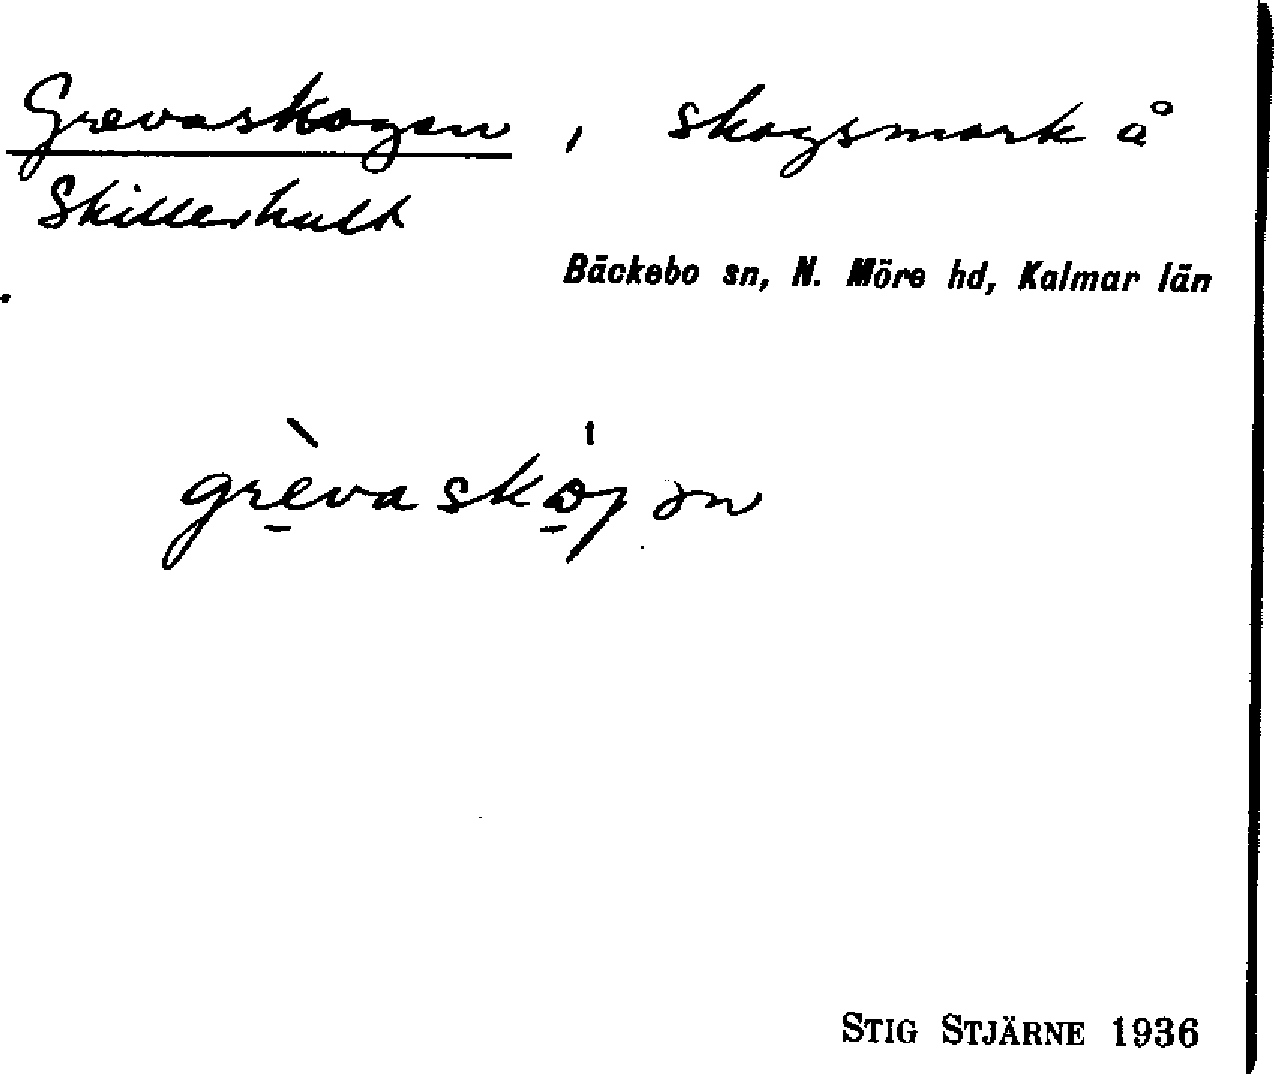 Grevaskogen, skogsmark å
Skillerhult
Bäckebo sn, N. Möre hd, Kalmar län
grèvaskògən
STIG STJÄRNE 1936